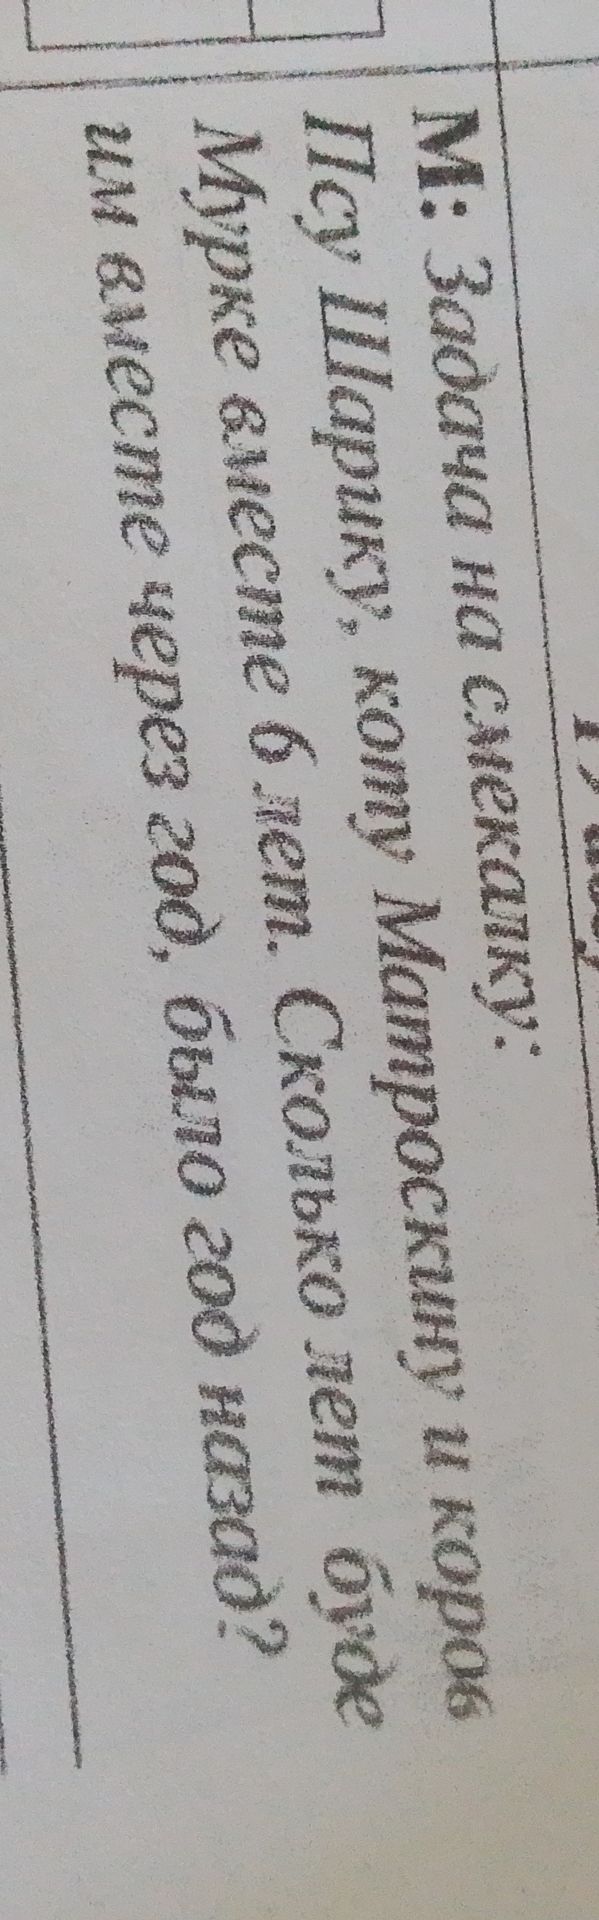 М: Задача на смекалку:
Псу Шарику, коту Матроскину и коров
Мурке вместе 6 лет. Сколько лет буде
им вместе через год, было год назад?